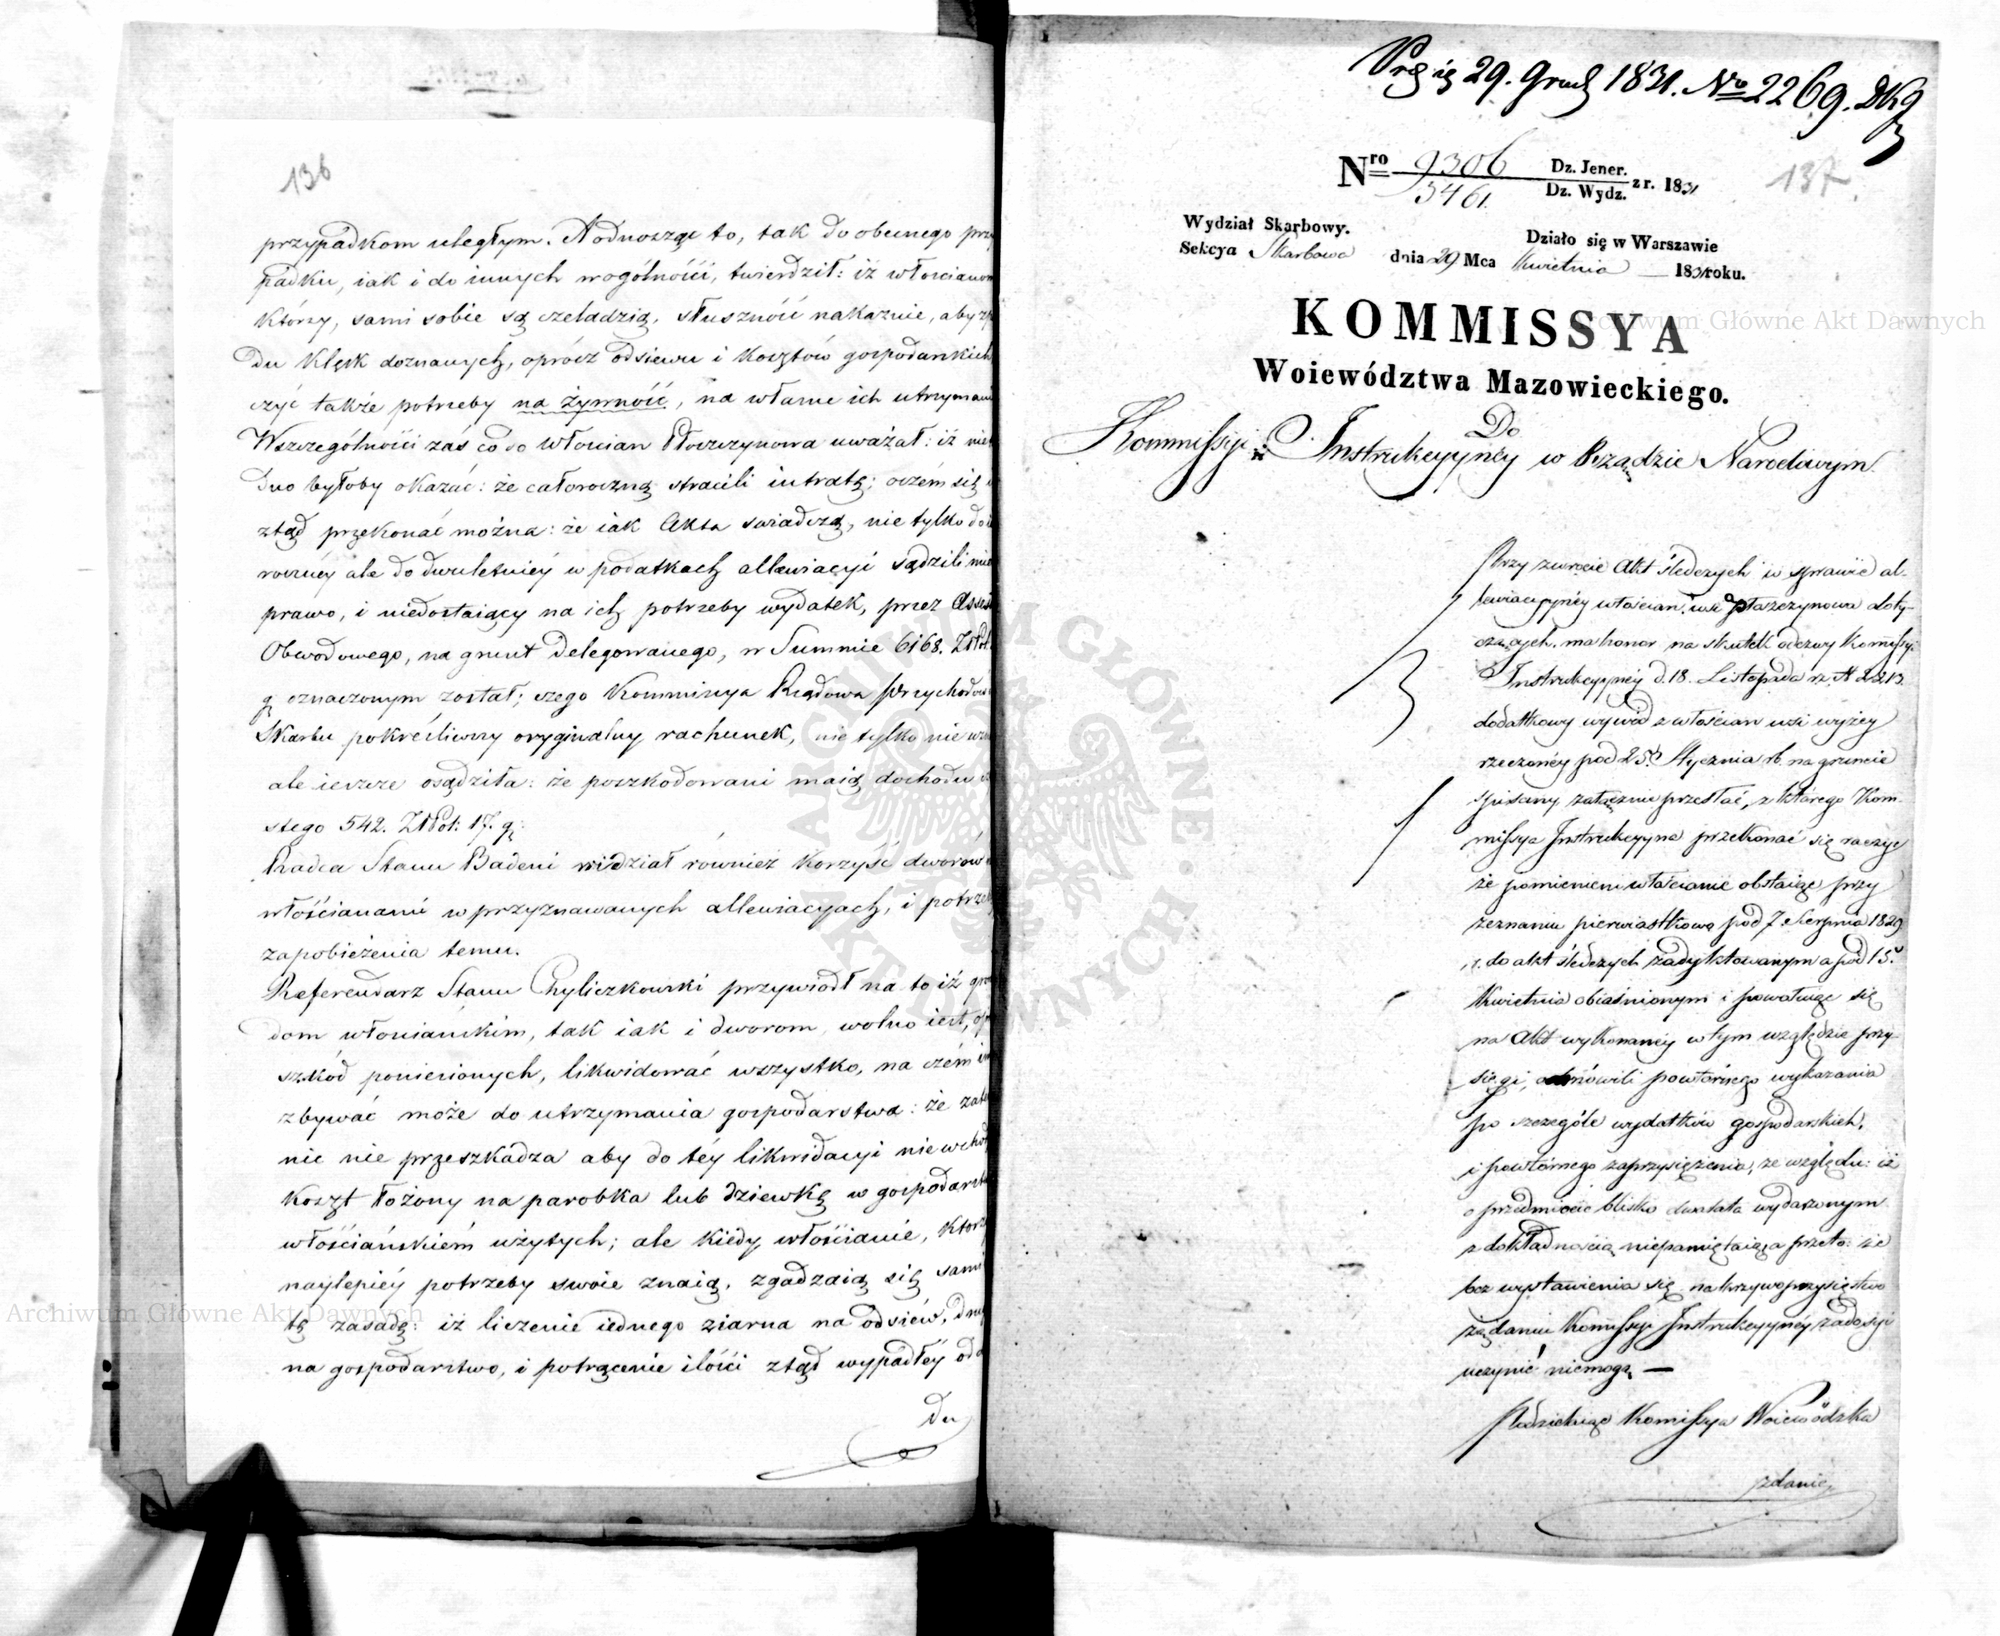 136
przypadkom uległym. Aodnosząc to, tak do obecnego przy
padku, iak i do innych wogólności, twierdził: iż włościanom
którzy, sami sobie są czeladzią, słuszność nakazuie, aby
du klęsk doznanych, oprócz odsiewu i kosztów gospodarskich
czyć także potrzeby na żywność, na własne ich utrzymani
Wszczególności zaś co do włościan Płoszczynowa uważał: iż nie
dno byłoby okazać: że całoroczną stracili intratę; oczém się
ztąd przekonać można: że iak Akta świadczą, nie tylko do
roczney ale do dwuletniéy w podatkach allewiacyi sądzili mie
prawo, i niedostaiący na ich potrzeby wydatek, przez Assess
Obwodowego, na grunt delegowanego, w Summie 6168. Złpol.
gr oznaczonym został; czego Kommissya Rządowa Przychodów
Skarbu pokréśliwszy oryginalny rachunek, nie tylko nie
ale ieszcze osądziła: że poszkodowani maią dochodu
stego 542. ZłPol: 17. gr:
Radca Stanu Badeni widział również korzyść dworów
włościanami w przyznawanych allewiacyach, i potrzeb
zapobieżenia temu.
Referendarz Stanu Chyliczkowski przywiódł na to iż gro
dom włościańskim, tak iak i dworom, wolno iest,
szkód poniesionych, likwidować wszystko, na czém
zbywać może do utrzymania gospodarstwa: że zatém
nic nie przeszkadza aby do téy likwidacyi nie wchod
koszt łożony na parobka lub dziewkę w gospodarst
włościańskiém użytych; ale kiedy włościanie, którzy
naylepiéy potrzeby swoie znaią, zgadzaią się sami
tę zasadę: iż liczenie iednego ziarna na odsiew, drug
na gospodarstwo, i potrącenie ilości ztąd wypadłéy od
du
29. Grud 1831. Nro 2269.
137
Nro 9306 Dz. Jener.
3461. Dz. Wydz. z r. 1831
Wydział Skarbowy.
Sekcya Skarbowa
Działo się w Warszawie
dnia 29 Mca Kwietnia 1831 roku.
KOMMISSYA
Woiewództwa Mazowieckiego.
Do
Kommissyi Instrukcyyney w Rządzie Narodowym.
Przy zwrocie Akt śledczych w sprawie al-
lewiacyyney włościan wsi Płaszczynowa doty-
czących, ma honor na skutek odezwy Kommissyi
Instrukcyyney d. 18. Listopada rz. N 2213.
dodatkowy wywód z włościan wsi wyżey
rzeczonéy pod 25. Stycznia rb. na gruncie
spisany załącznie przesłać, z którego Kom-
missya Instrukcyyna przekonać się raczy
że pomienieni włościanie obstaiąc przy
zeznaniu pierwiastkowo pod 7. Sierpnia 1829
r. do akt śledczych zadyktowanym a pod 15.
Kwietnia obiaśnionym i powołuiąc się
na Akt wykonaney w tym względzie przy-
sięgi, odmówili powtórnego wykazania
po szczególe wydatków gospodarskich,
i powtórnego zaprzysiężenia, ze względu: iż
o przedmiocie blisko dwa lata wydarzonym
z dokładnością niepamiętaią przeto: że
bez wystawienia się na krzywoprzysięstwo
żądaniu Komissyi Instrukcyyney zadosyć
uczynić niemogą —
Podzielaiąc Komissya Woiewódzka
zdanie
Archiwum Główne Akt Dawnych
Archiwum Główne Akt Dawnych
ARCHIWUM GŁÓWNE AKT DAWNYCH